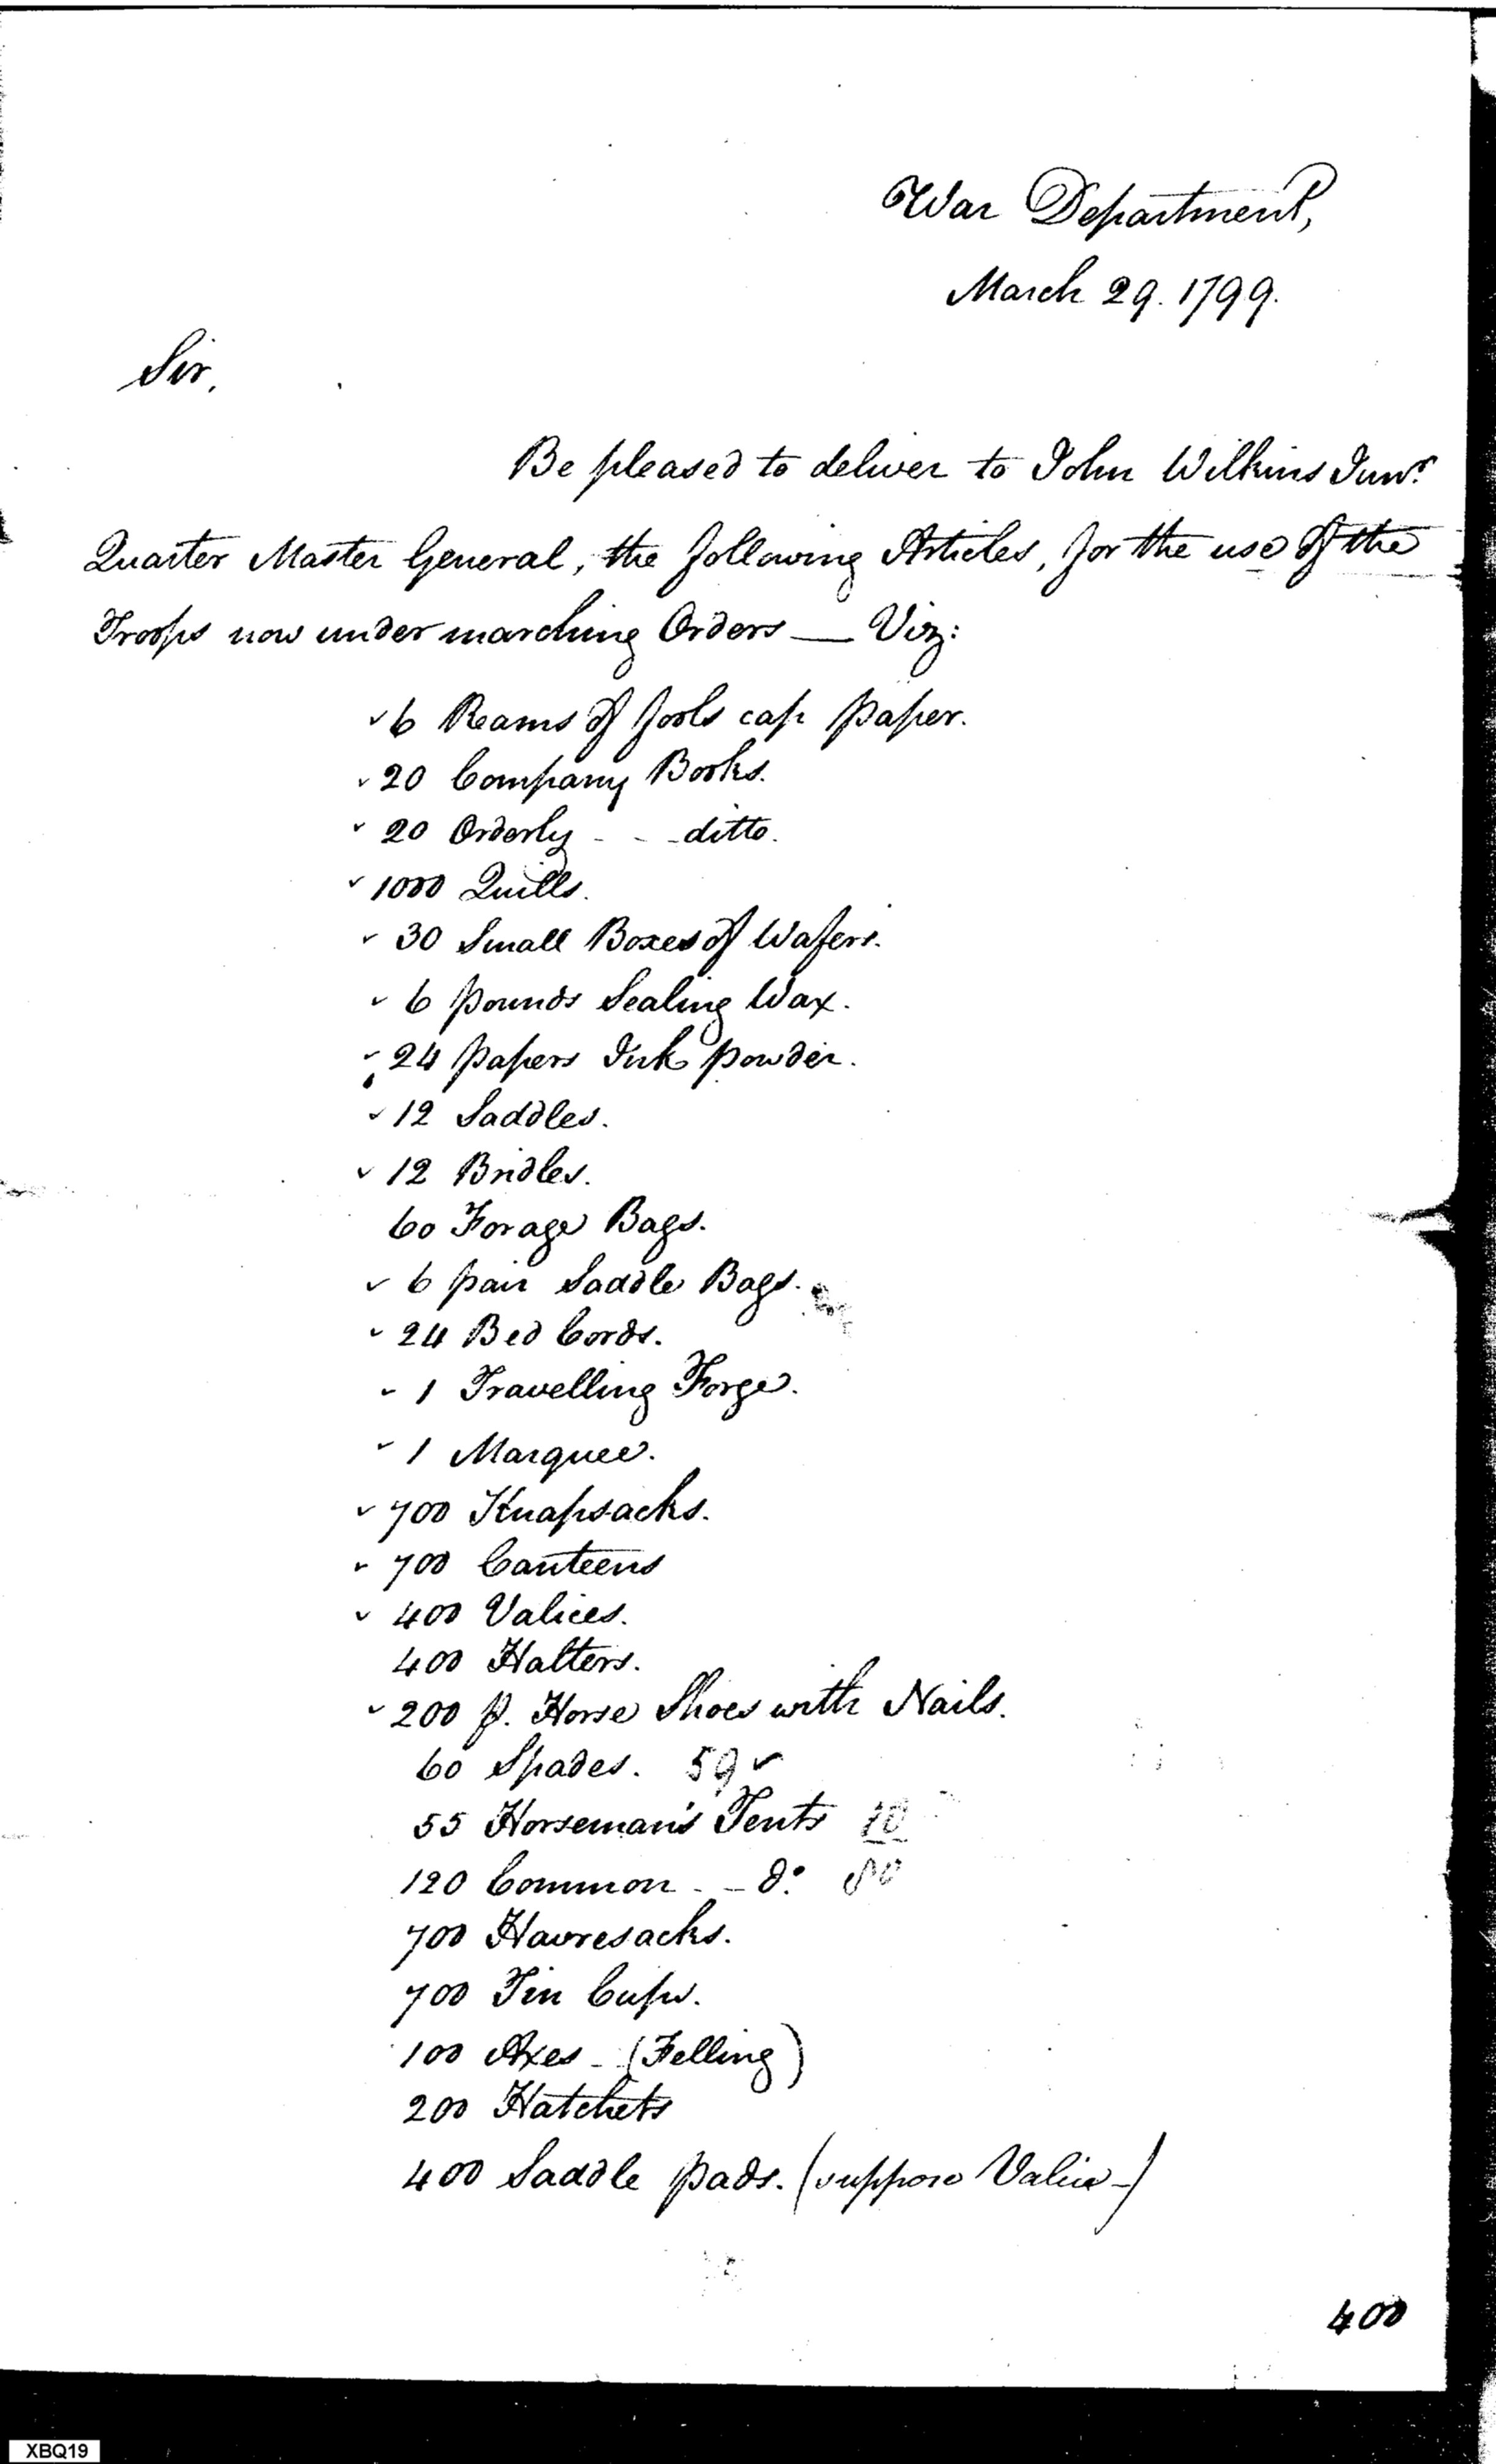 War Department,
March 29. 1799.
Sir,
Be pleased to deliver to John Wilkins Junr.
Quarter Master General, the following Articles, for the use of the
Troops now under marching Orders — Viz:
✓ 6 Reams of fools cap paper.
✓ 20 Company Books.
✓ 20 Orderly - - - ditto.
✓ 1000 Quills.
✓ 30 Small Boxes of Wafers.
✓ 6 pounds Sealing Wax.
✓ 24 papers Ink powder.
✓ 12 Saddles.
✓ 12 Bridles.
60 Forage Bags.
✓ 6 pair Saddle Bags.
✓ 24 Bed Cords.
✓ 1 Travelling Forge.
✓ 1 Marquee.
✓ 700 Knapsacks.
✓ 700 Canteens
✓ 400 Valices.
400 Halters.
✓ 200 p. Horse Shoes with Nails.
60 Spades. 59 ✓
55 Horseman's Tents
120 Common - - do. 80
700 Havresacks.
700 Tin Cups.
100 Axes - (Felling)
200 Hatchets
400 Saddle pads. (suppose Valice -)
400
XBQ19